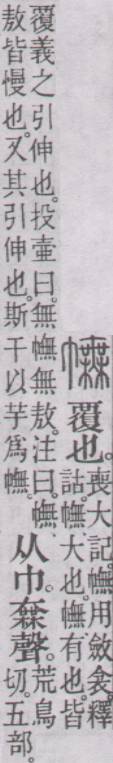 幠覆也。喪大記。幠用斂衾。釋
詁。幠大也。幠有也。皆
覆義之引伸也。投壺曰。無幠無敖。注曰。幠
敖皆慢也。又其引伸也。斯干以芋爲幠。
从巾。橆聲。荒烏
切。五部。